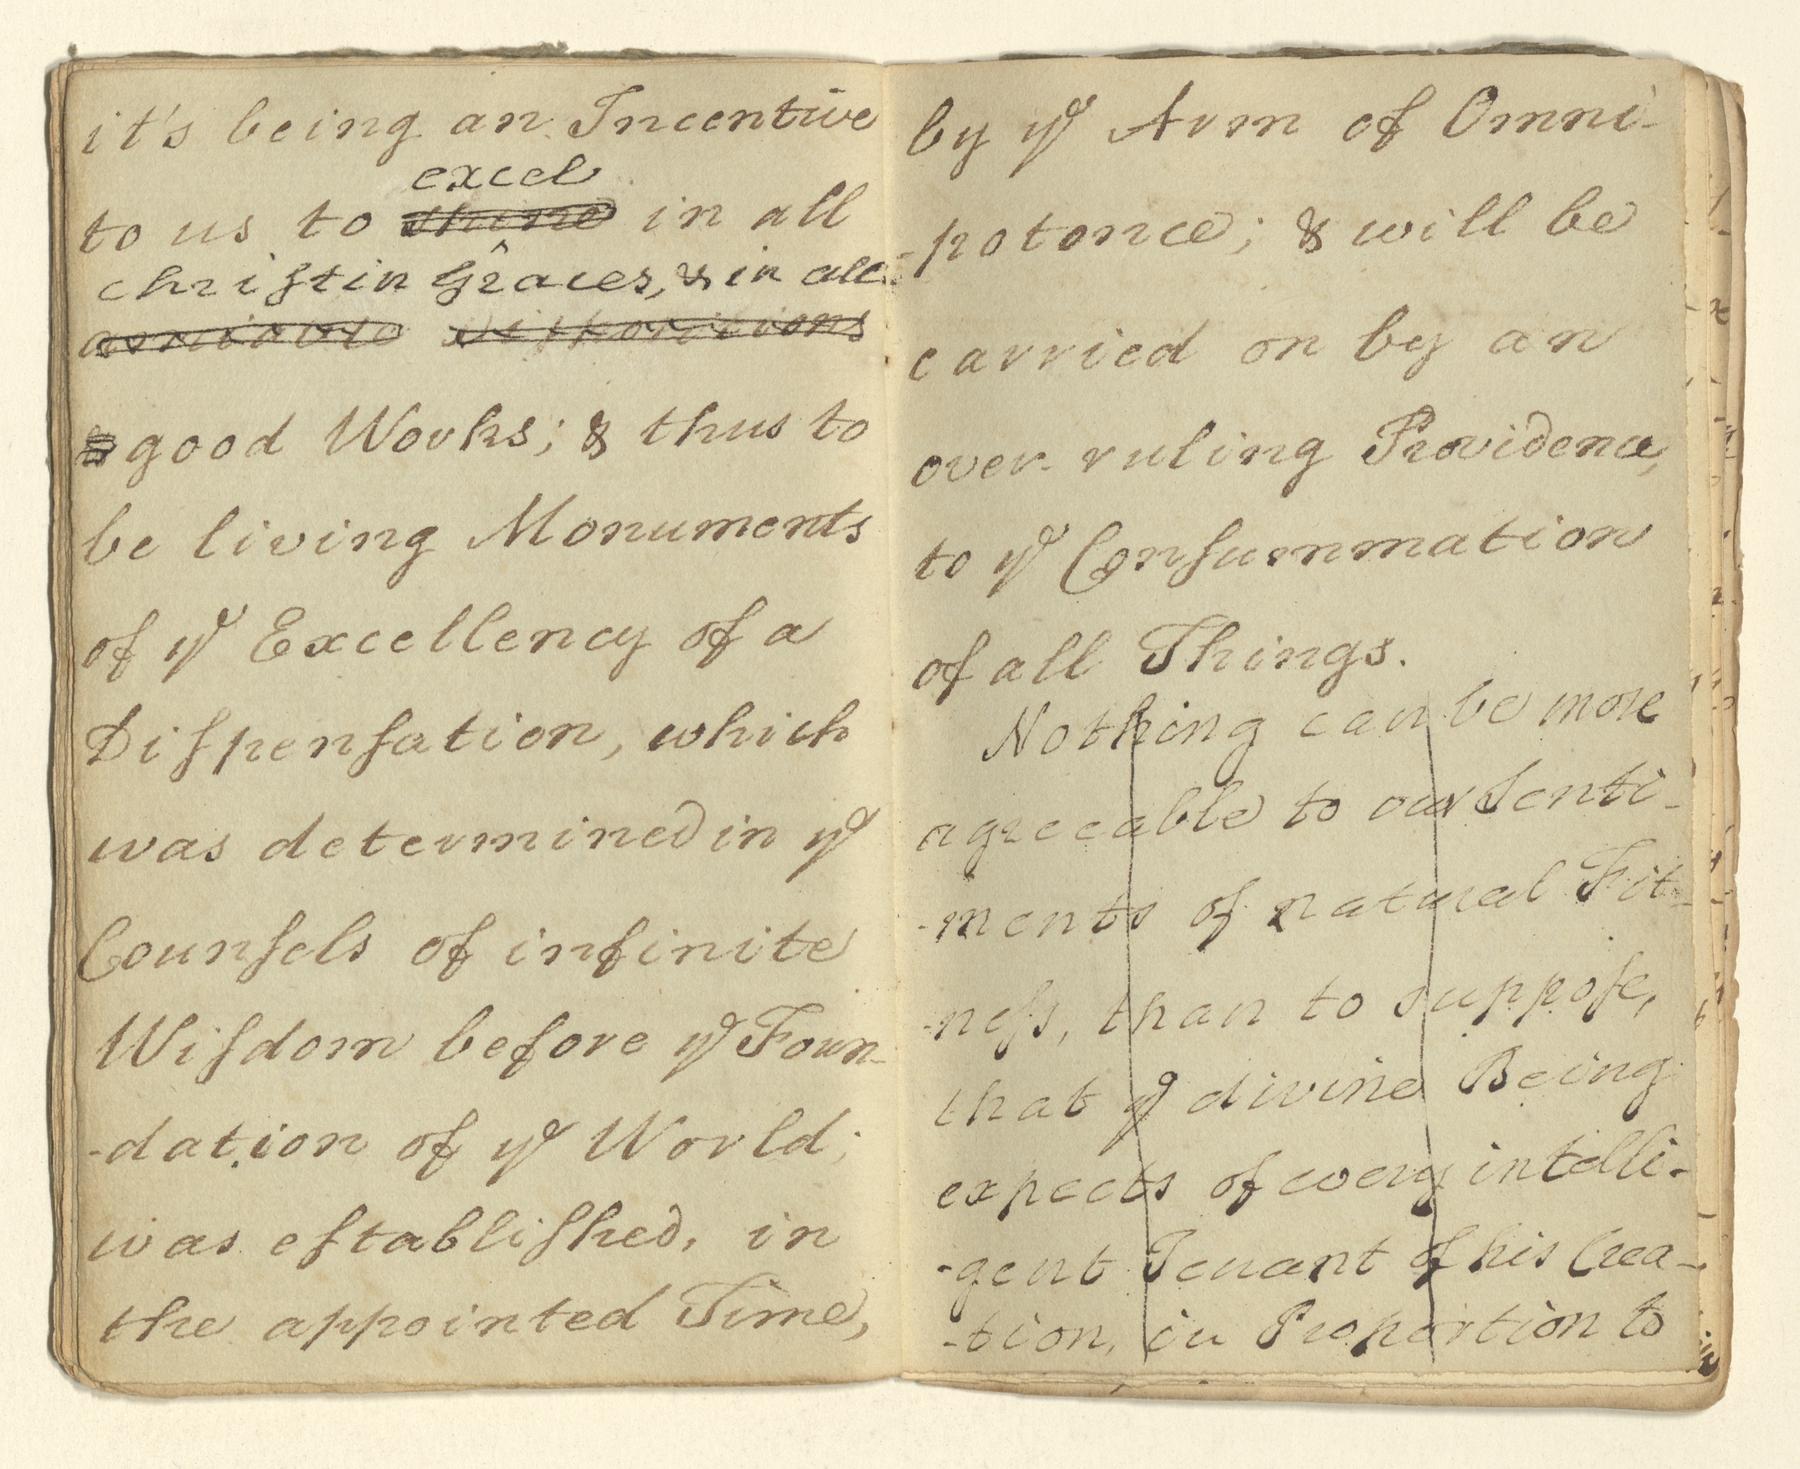 it's being an Incentive
excel
to us to shine in all
christin Graces, & in all
amiable Dispositions
& good Works; & thus to
be living Monuments
of yᵉ Excellency of a
Diſpenſation, which
was determined in yᵉ
Counſels of infinite
Wiſdom before yᵉ Foun-
-dation of yᵉ World;
was eſtabliſhed, in
the appointed Time,
by yᵉ Arm of Omni-
-potence; & will be
carried on by an
over-ruling Providence,
to yᵉ Conſummation
of all Things.
Nothing can be more
agreeable to our Senti-
-ments of natural Fit-
-neſs, than to suppoſe,
that yᵉ divine Being
expects of every intelli-
-gent Tenant of his Crea-
-tion, in Proportion to